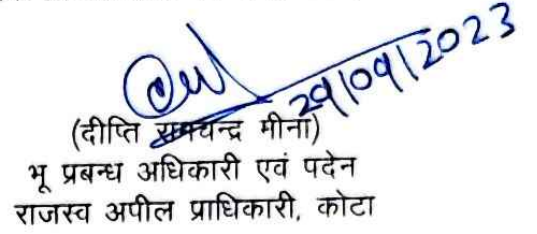 29/09/2023
(दीप्ति रामचन्द्र मीना)
भू प्रबन्ध अधिकारी एवं पदेन
राजस्व अपील प्राधिकारी, कोटा